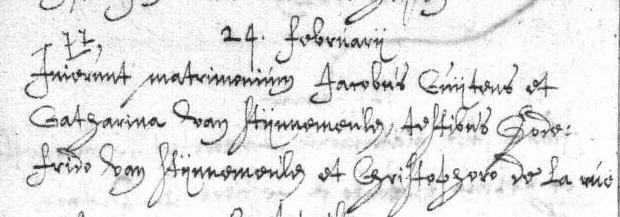 77, 24. februarij
Inierunt matrimonium Jacobus Cuijtens et
Catharina van Stijnnemeulen, testibus Gode:
frido van Stijnnemeulen et Christophoro de la rue